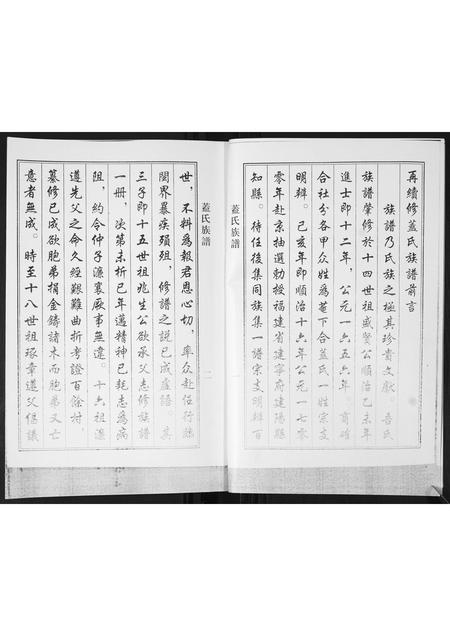 再續修蓋氏族譜前言
族譜乃氏族之極其珍貴文獻。吾氏
族譜肇修於十四世祖盛賢公順治乙未年
進士即十二年，公元一六五六年，商確
合社分各甲众姓為菴下合蓋氏一姓宗支
明辨。己亥年即順治十六年公元一七零
零年赴京抽選勅授福建省建寧府建陽縣
知縣。待任後集同族集一譜宗支明辨百
蓋氏族譜
蓋氏族譜
世，不料為報君恩心切，率众赴任行經
閩界暴疾殞殂，修譜之説已成虛語。其
三子即十五世祖兆生公欲承父志修族譜
一冊 次第未折已年邁精神已耗志為病
阻，約令仲子源襄厥事無違。十六祖源
遵先父之命久經艱難曲折考證百餘村，
纂修已成欲胞弟捐金鑄諸木而胞弟又亡
意者無成。時至十八世祖琢章遵父偃議